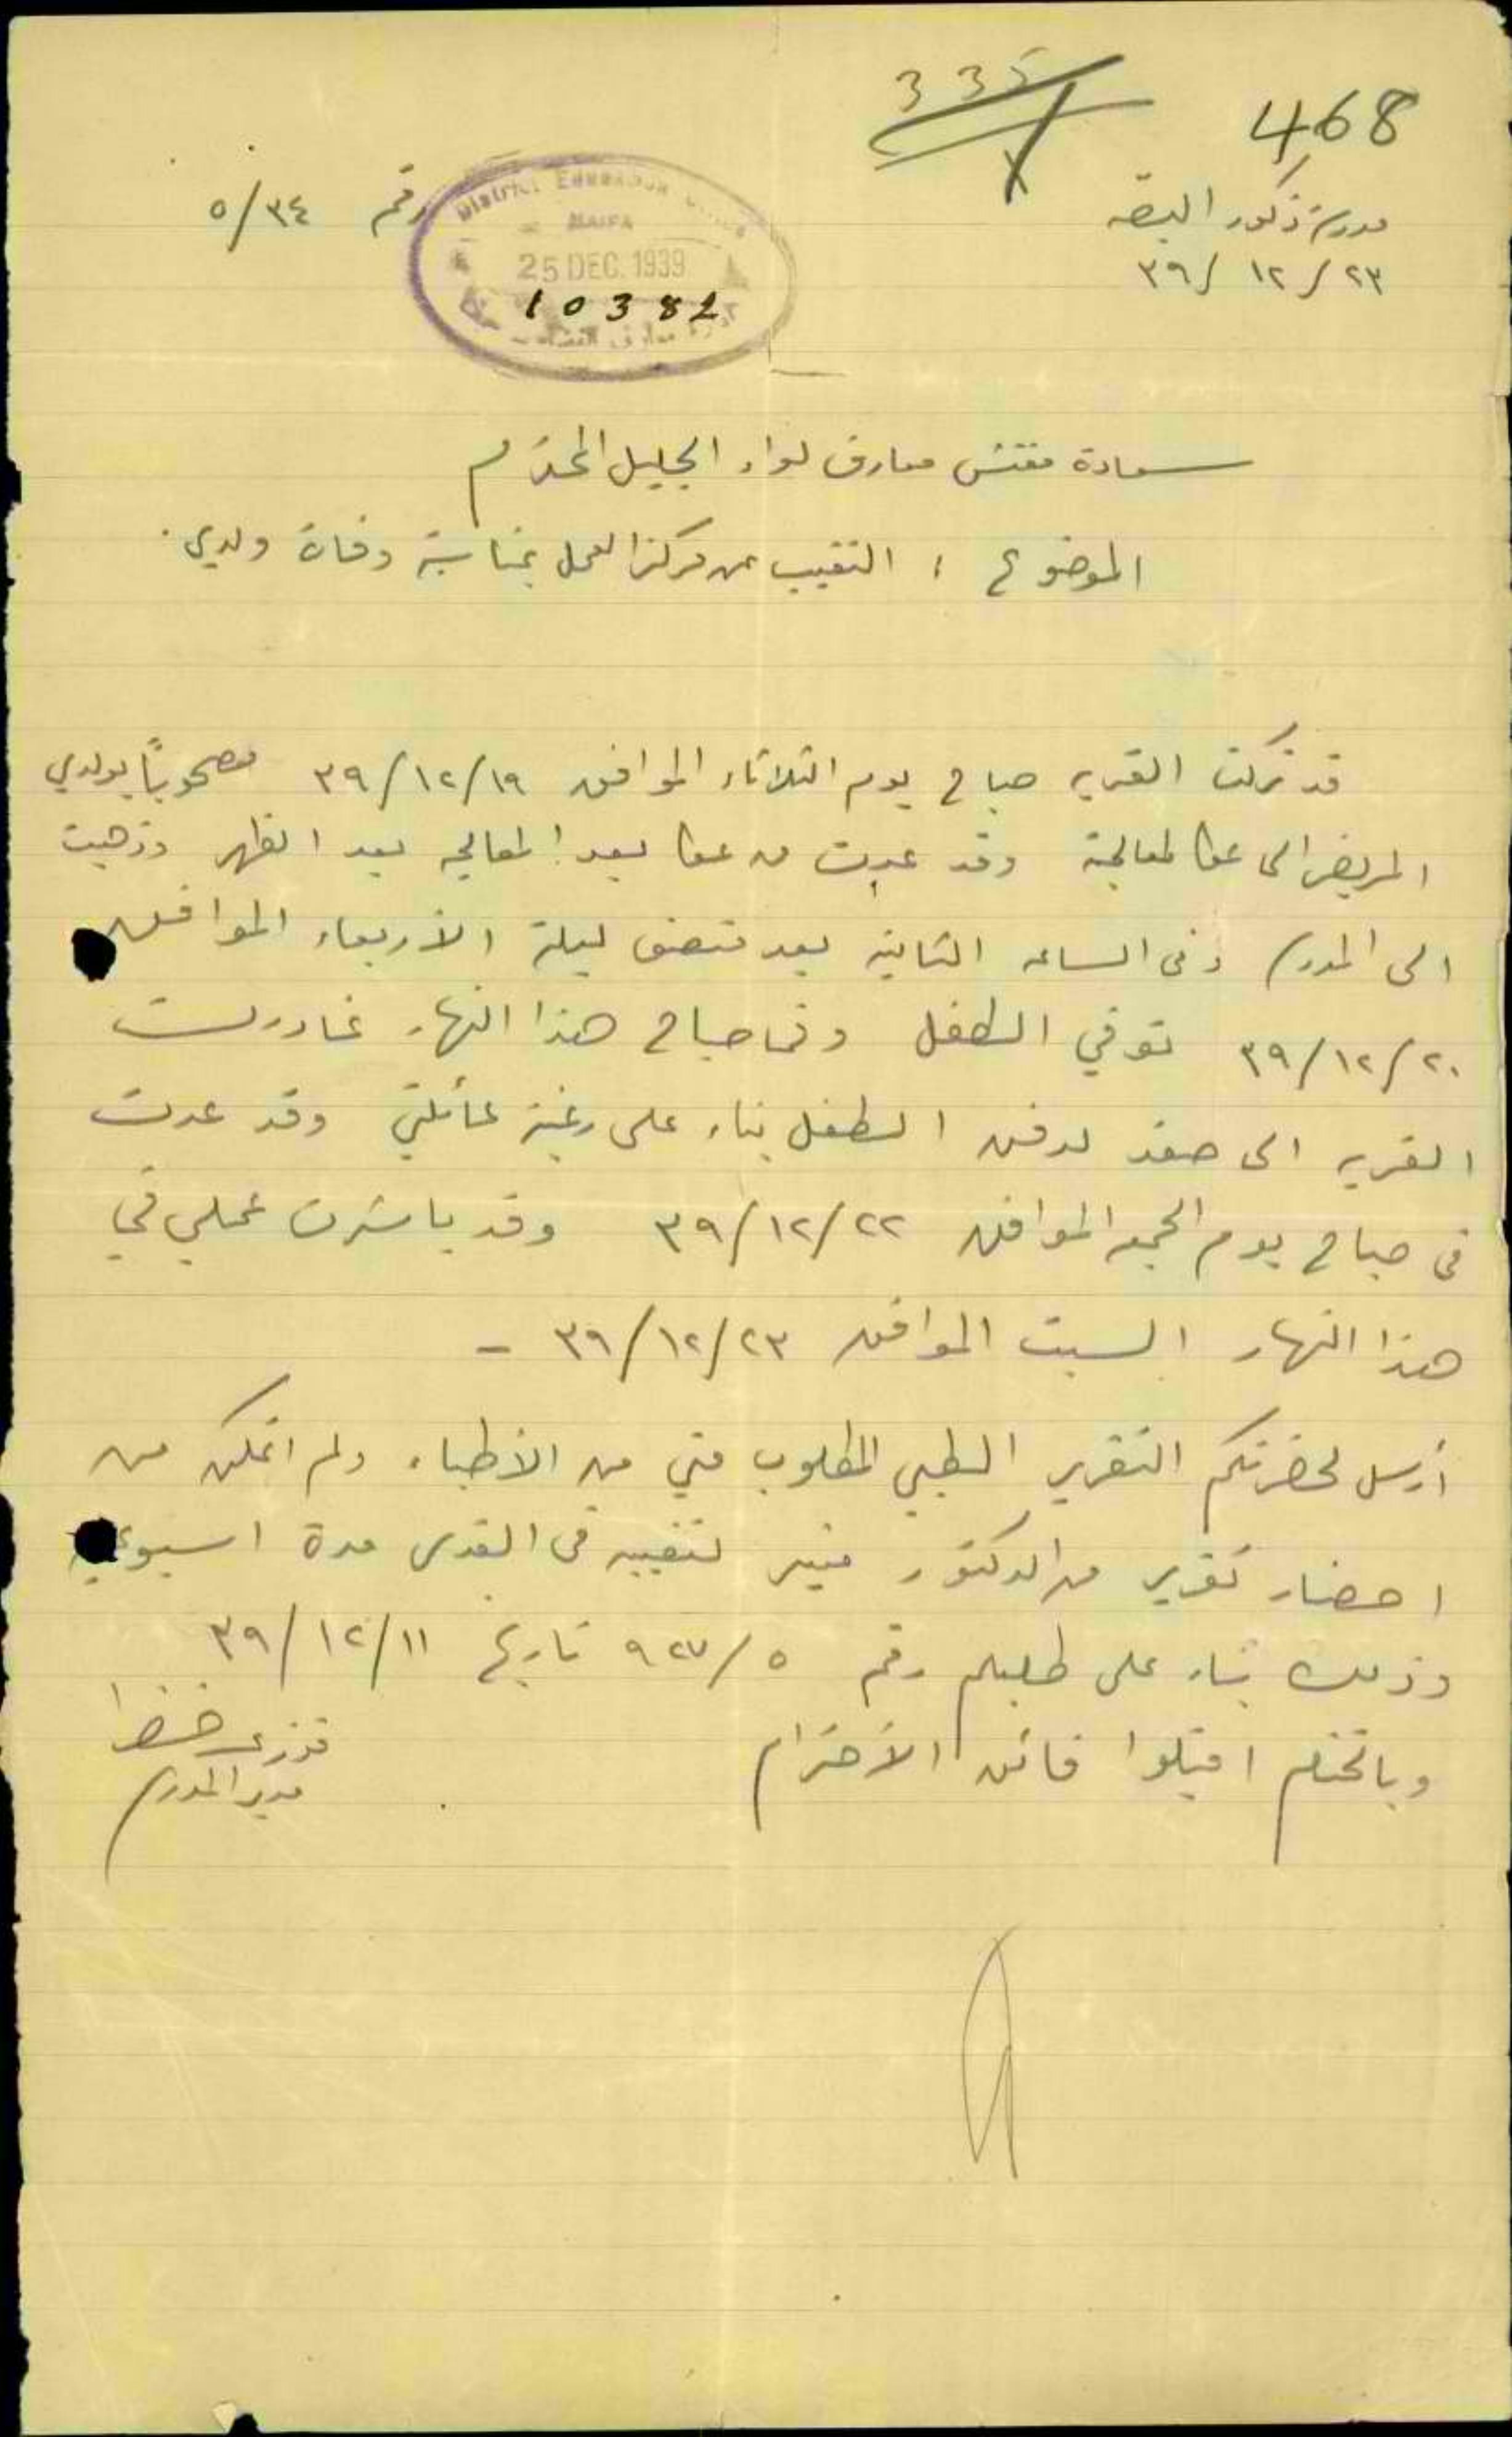 335
468
مدرسة ذكور البصه
٢٣/ ١٢/ ٣٩
رقم ٥/٣٤
District Education Office
HAIFA
25 DEC. 1939
10382
سعادة مفتش معارف لواء الجليل المحترم
الموضوع : التغيب عن مركز العمل بمناسبة وفاة ولدي.
قد تركت القريه صباح يوم الثلاثاء الموافق ٣٩/١٢/١٩ مصحوباً بولدي
المريض الى عكا لمعالجة وقد عدت من عكا بعد المعالجه بعد الظهر وذهبت
الى المدرسه وفى الساعه الثانيه بعد منتصف ليلة الأربعاء الموافق
٣٩/١٢/٢٠ توفي الطفل وفى صباح هذا النهار غادرت
القريه الى صفد لدفن الطفل بناء على رغبة عائلتي وقد عدت
فى صباح يوم الجمعه الموافق ٣٩/١٢/٢٢ وقد باشرت عملي في
هذا النهار السبت الموافق ٣٩/١٢/٢٣ -
أرسل لحضرتكم التقرير الطبي المطلوب مني من الأطباء ولم اتمكن من
احضار تقرير من الدكتور منير لتغيبه فى القدس مدة اسبوعين
وذلك بناء على طلبكم رقم ٥/ ٩٢٧ تاريخ ٣٩/١٢/١١
وبالختام اقبلوا فائق الأحترام
فوزي خضرا
مدير المدرسه